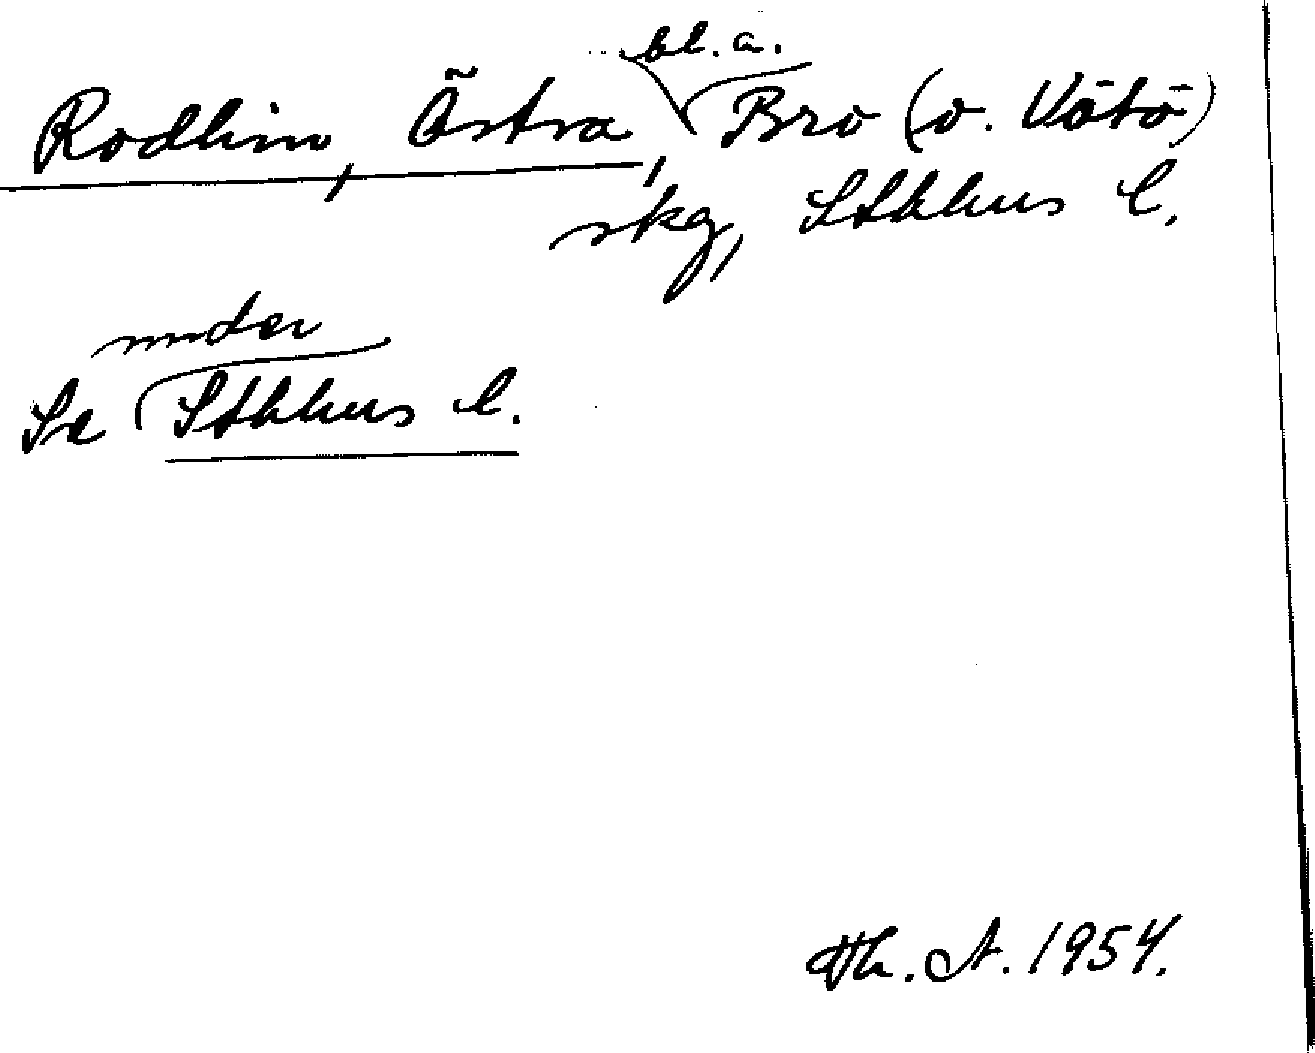 Rodhim, Östra, bl.a. Bro (o. Vätö)
skg, Sthlms l.
Se under Sthlms l.
Th. A. 1954.